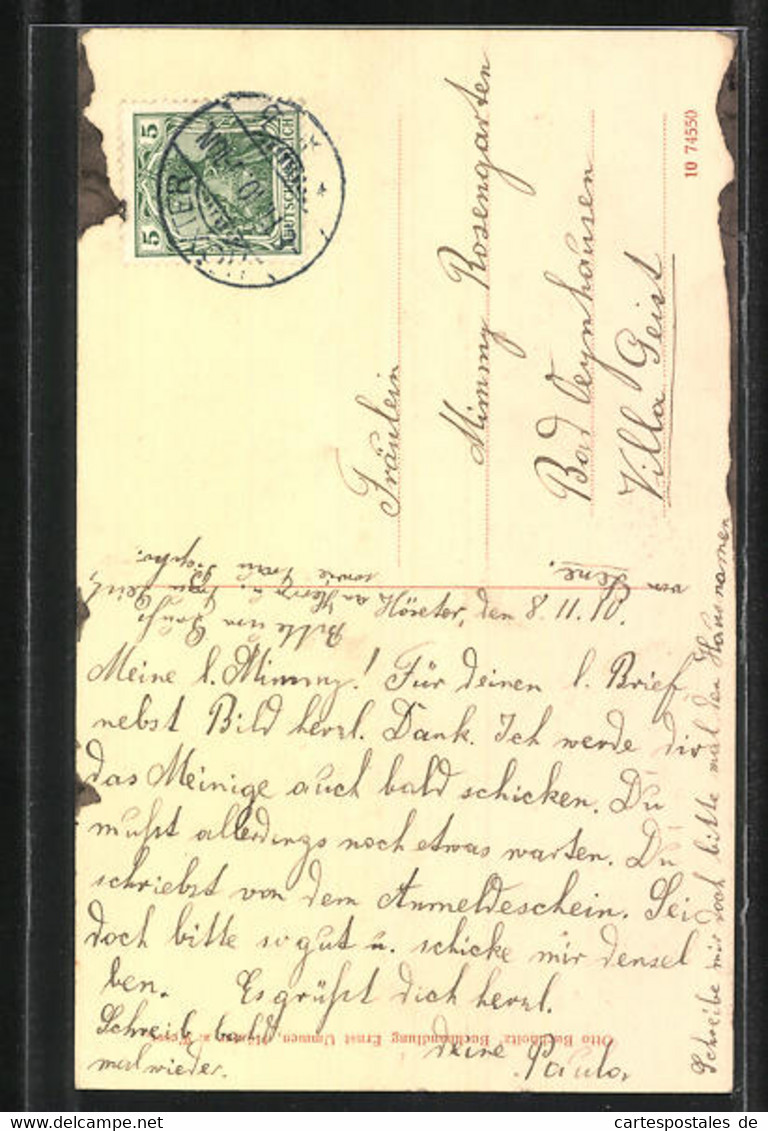 5
5
10 74550
Fräulein
Mimmy Rosengarten
Bad Oeynhausen
Villa Geist
Höxter, den 8.11.10.
Meine l. Mimmy! Für deinen l. Brief
nebst Bild herzl. Dank. Ich werde dir
das Meinige auch bald schicken. Du
mußt allerdings noch etwas warten. Du
schriebst von dem Anmeldeschein. Sei
doch bitte so gut u. schicke mir densel
ben. Es grüßt dich herzl.
deine Paula
Schreib bald
mal wieder.
Schreibe mir doch bitte mal den Hausnamen
von Lene.
Bitte um
an Herrn u. Frau Geist,
sowie Frau
Otto Buchholtz, Buchhandlung Ernst
cartespostales de
www.delcampe.net